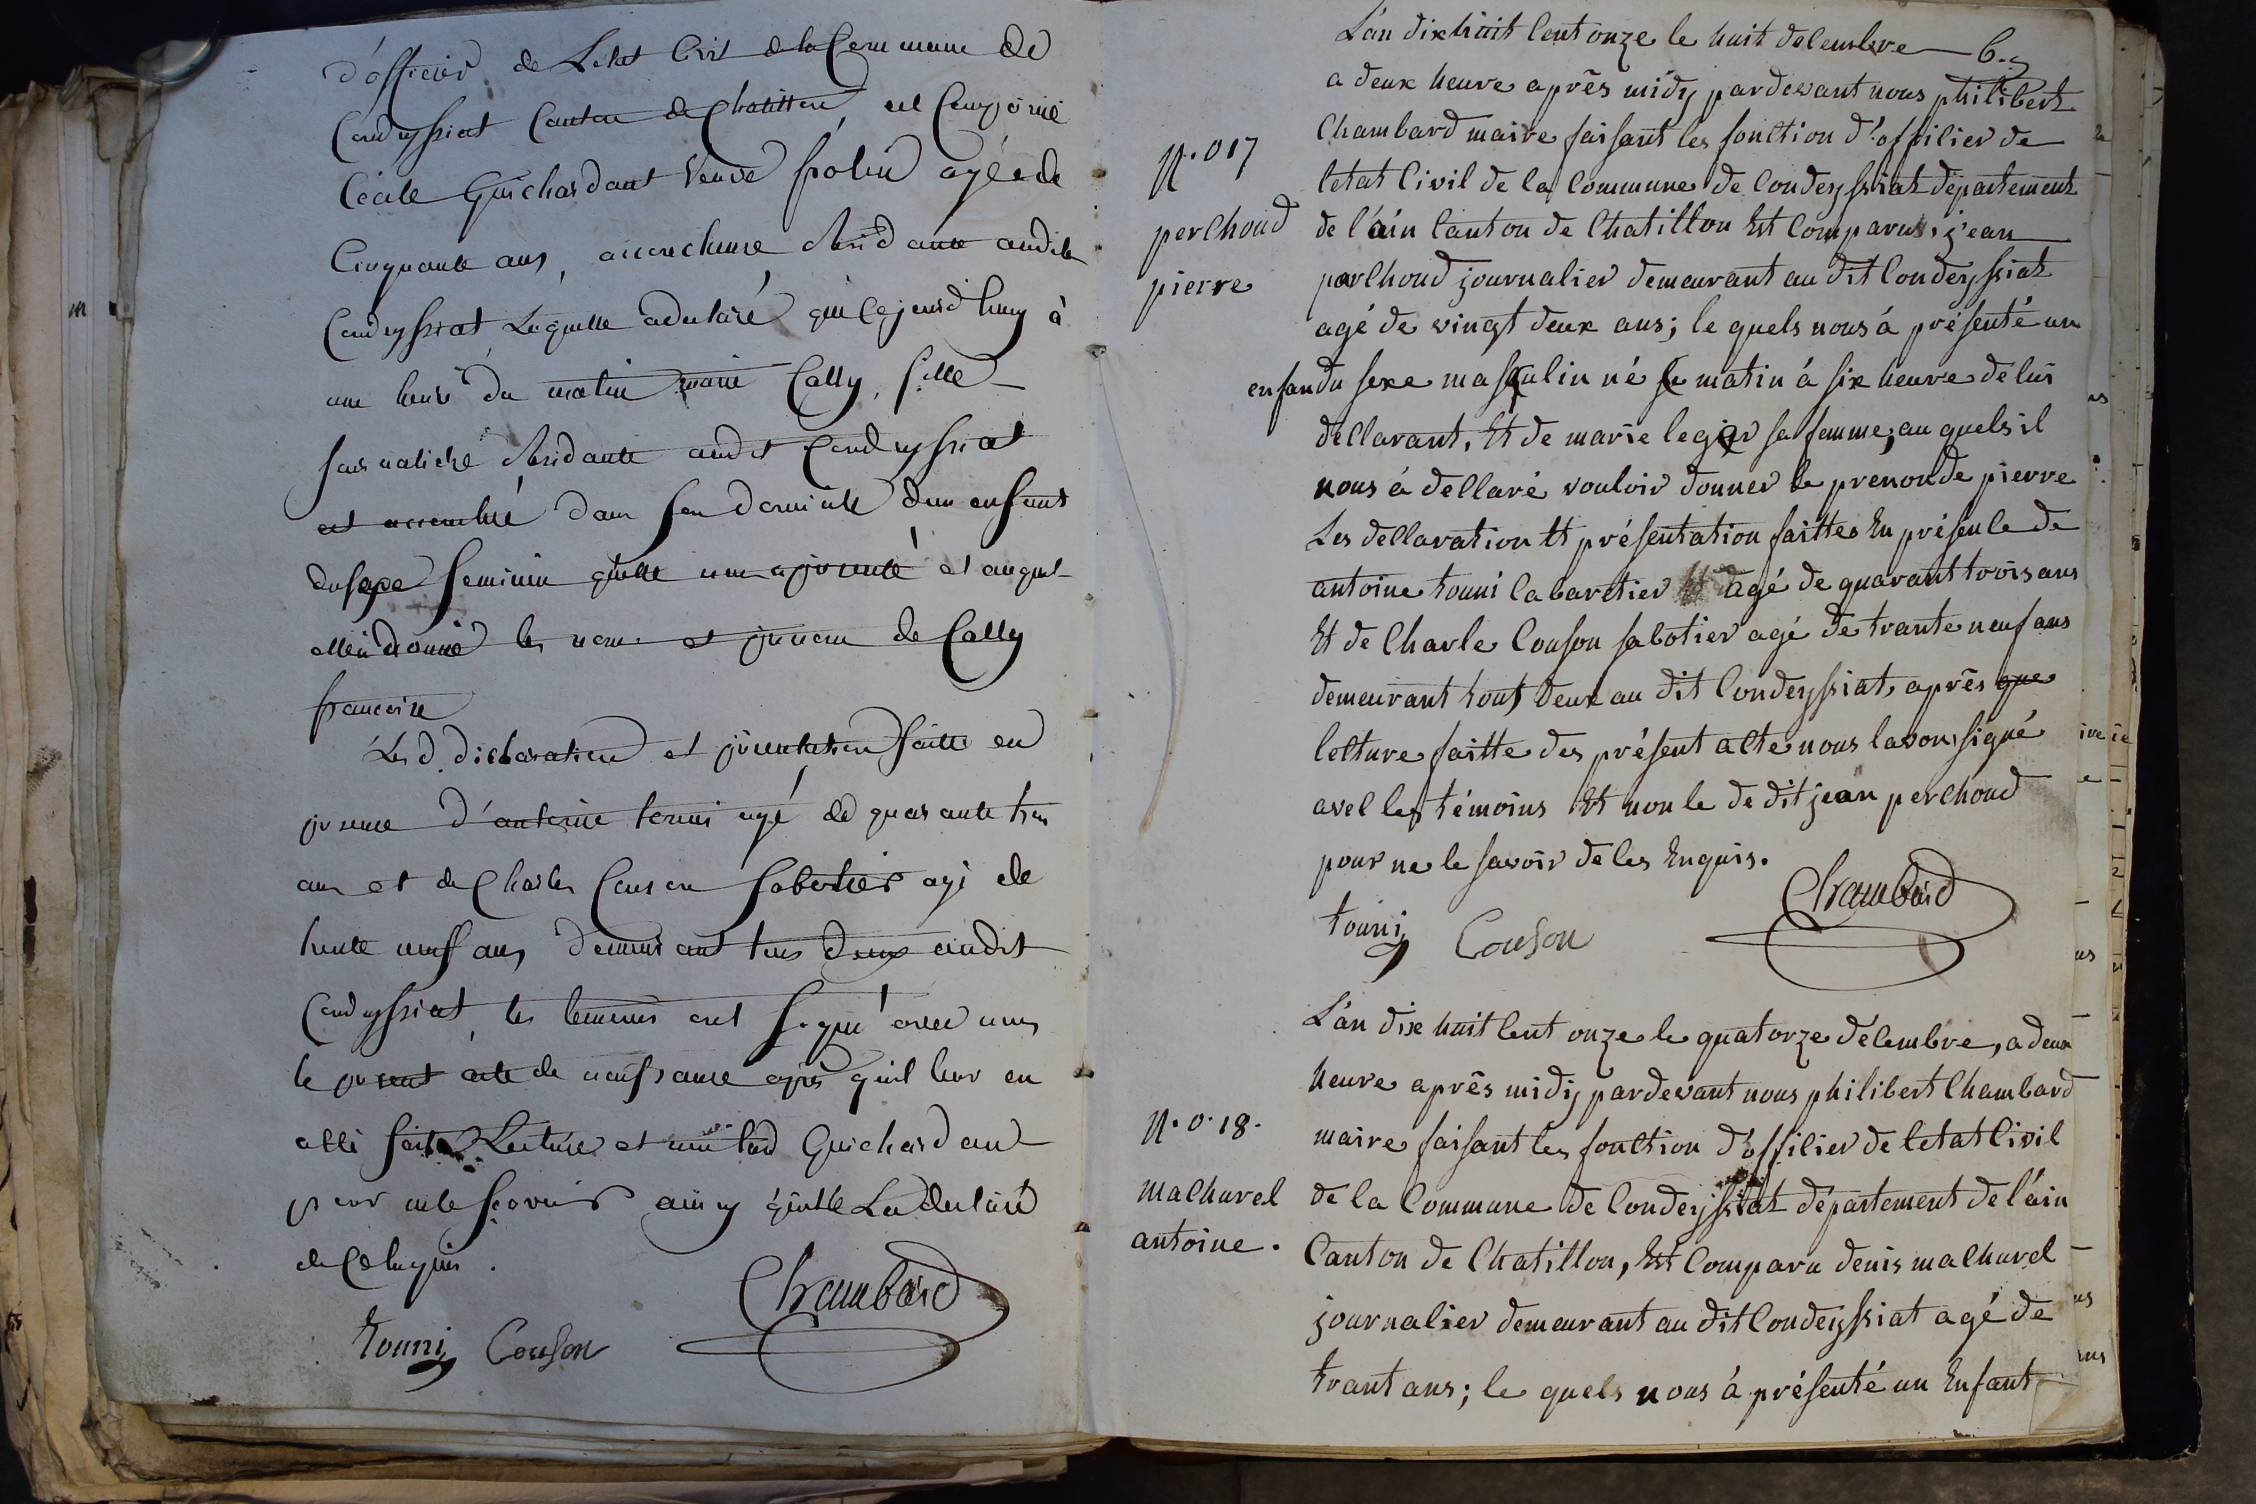 d'officier de Letat Civil de la Commune de
Condeyssiat Canton de Chatillon, est Comparue
Cécile Guichardant Veuve frolin agée de
Cinquante ans, accoucheuse Residante audit
Condeyssiat Laquelle a declaré que Cejourd'huy à
une heure du matin marie Cally, fille
journaliere Residante audit Condeyssiat
est accouché dans son domicile d'un enfant
du sexe feminin qu'elle nous a presenté et auquel
elle a donné les nom et prenom de Cally
francoise
Les d. déclaration et présentation faitte en
presence d'antoine tonni agé de quarante trois
ans et de Charles Conson Sabotier agé de
trente neuf ans demeurant tous deux audit
Condeyssiat, les temoins ont signé avec nous
le present acte de naissance après qu'il leur en
a été fait Lecture et non lad Guichardant
pour ne le scavoir ainsy qu'elle La declaré
de Ce Enquis.
tonni Conson Chambard
L'an dixhuit Cent onze le huit decembre 6.
a deux heure aprês midy pardevant nous philibert
Chambard maire faisant les fonction d'officier de
letat Civil de la Commune de Condeyssiat département
de l'ain Canton de Chatillon Est Comparus, jean
perchoud journalier demeurant au dit Condeyssiat
agé de vingt deux ans; le quels nous á présenté un
enfan du sexe masqulin né le matin á six heure de lui
déclarant, Et de marie leger sa femme, au quels il
nous á déclaré vouloir donner le prenon de pierre
Les declaration Et présentation faittes En présence de
antoine tonni Cabaretier agé de quarant trois ans
Et de Charle Conson sabotier agé de trante neuf ans
demeurant tout deux au dit Condeyssiat, aprês que
lecture faitte des présent acte nous lavons signé
avec les témoins Et non le de dit jean perchoud
pour ne le savoir de les Enquis.
tonni Conson Chambard
N.º 017
perchoud
pierre
L'an dix huit Cent onze le quatorze décembre, a deux
heure aprês midy pardevant nous philibert Chambard
maire faisant les fonction d'officier de letat Civil
de la Commune de Condeyssiat département de l'áin
Canton de Chatillon, Est Comparu denis machurel
journalier demeurant au dit Condeyssiat agé de
trant ans; le quels nous á présenté un Enfant
N.º 18.
machurel
antoine.